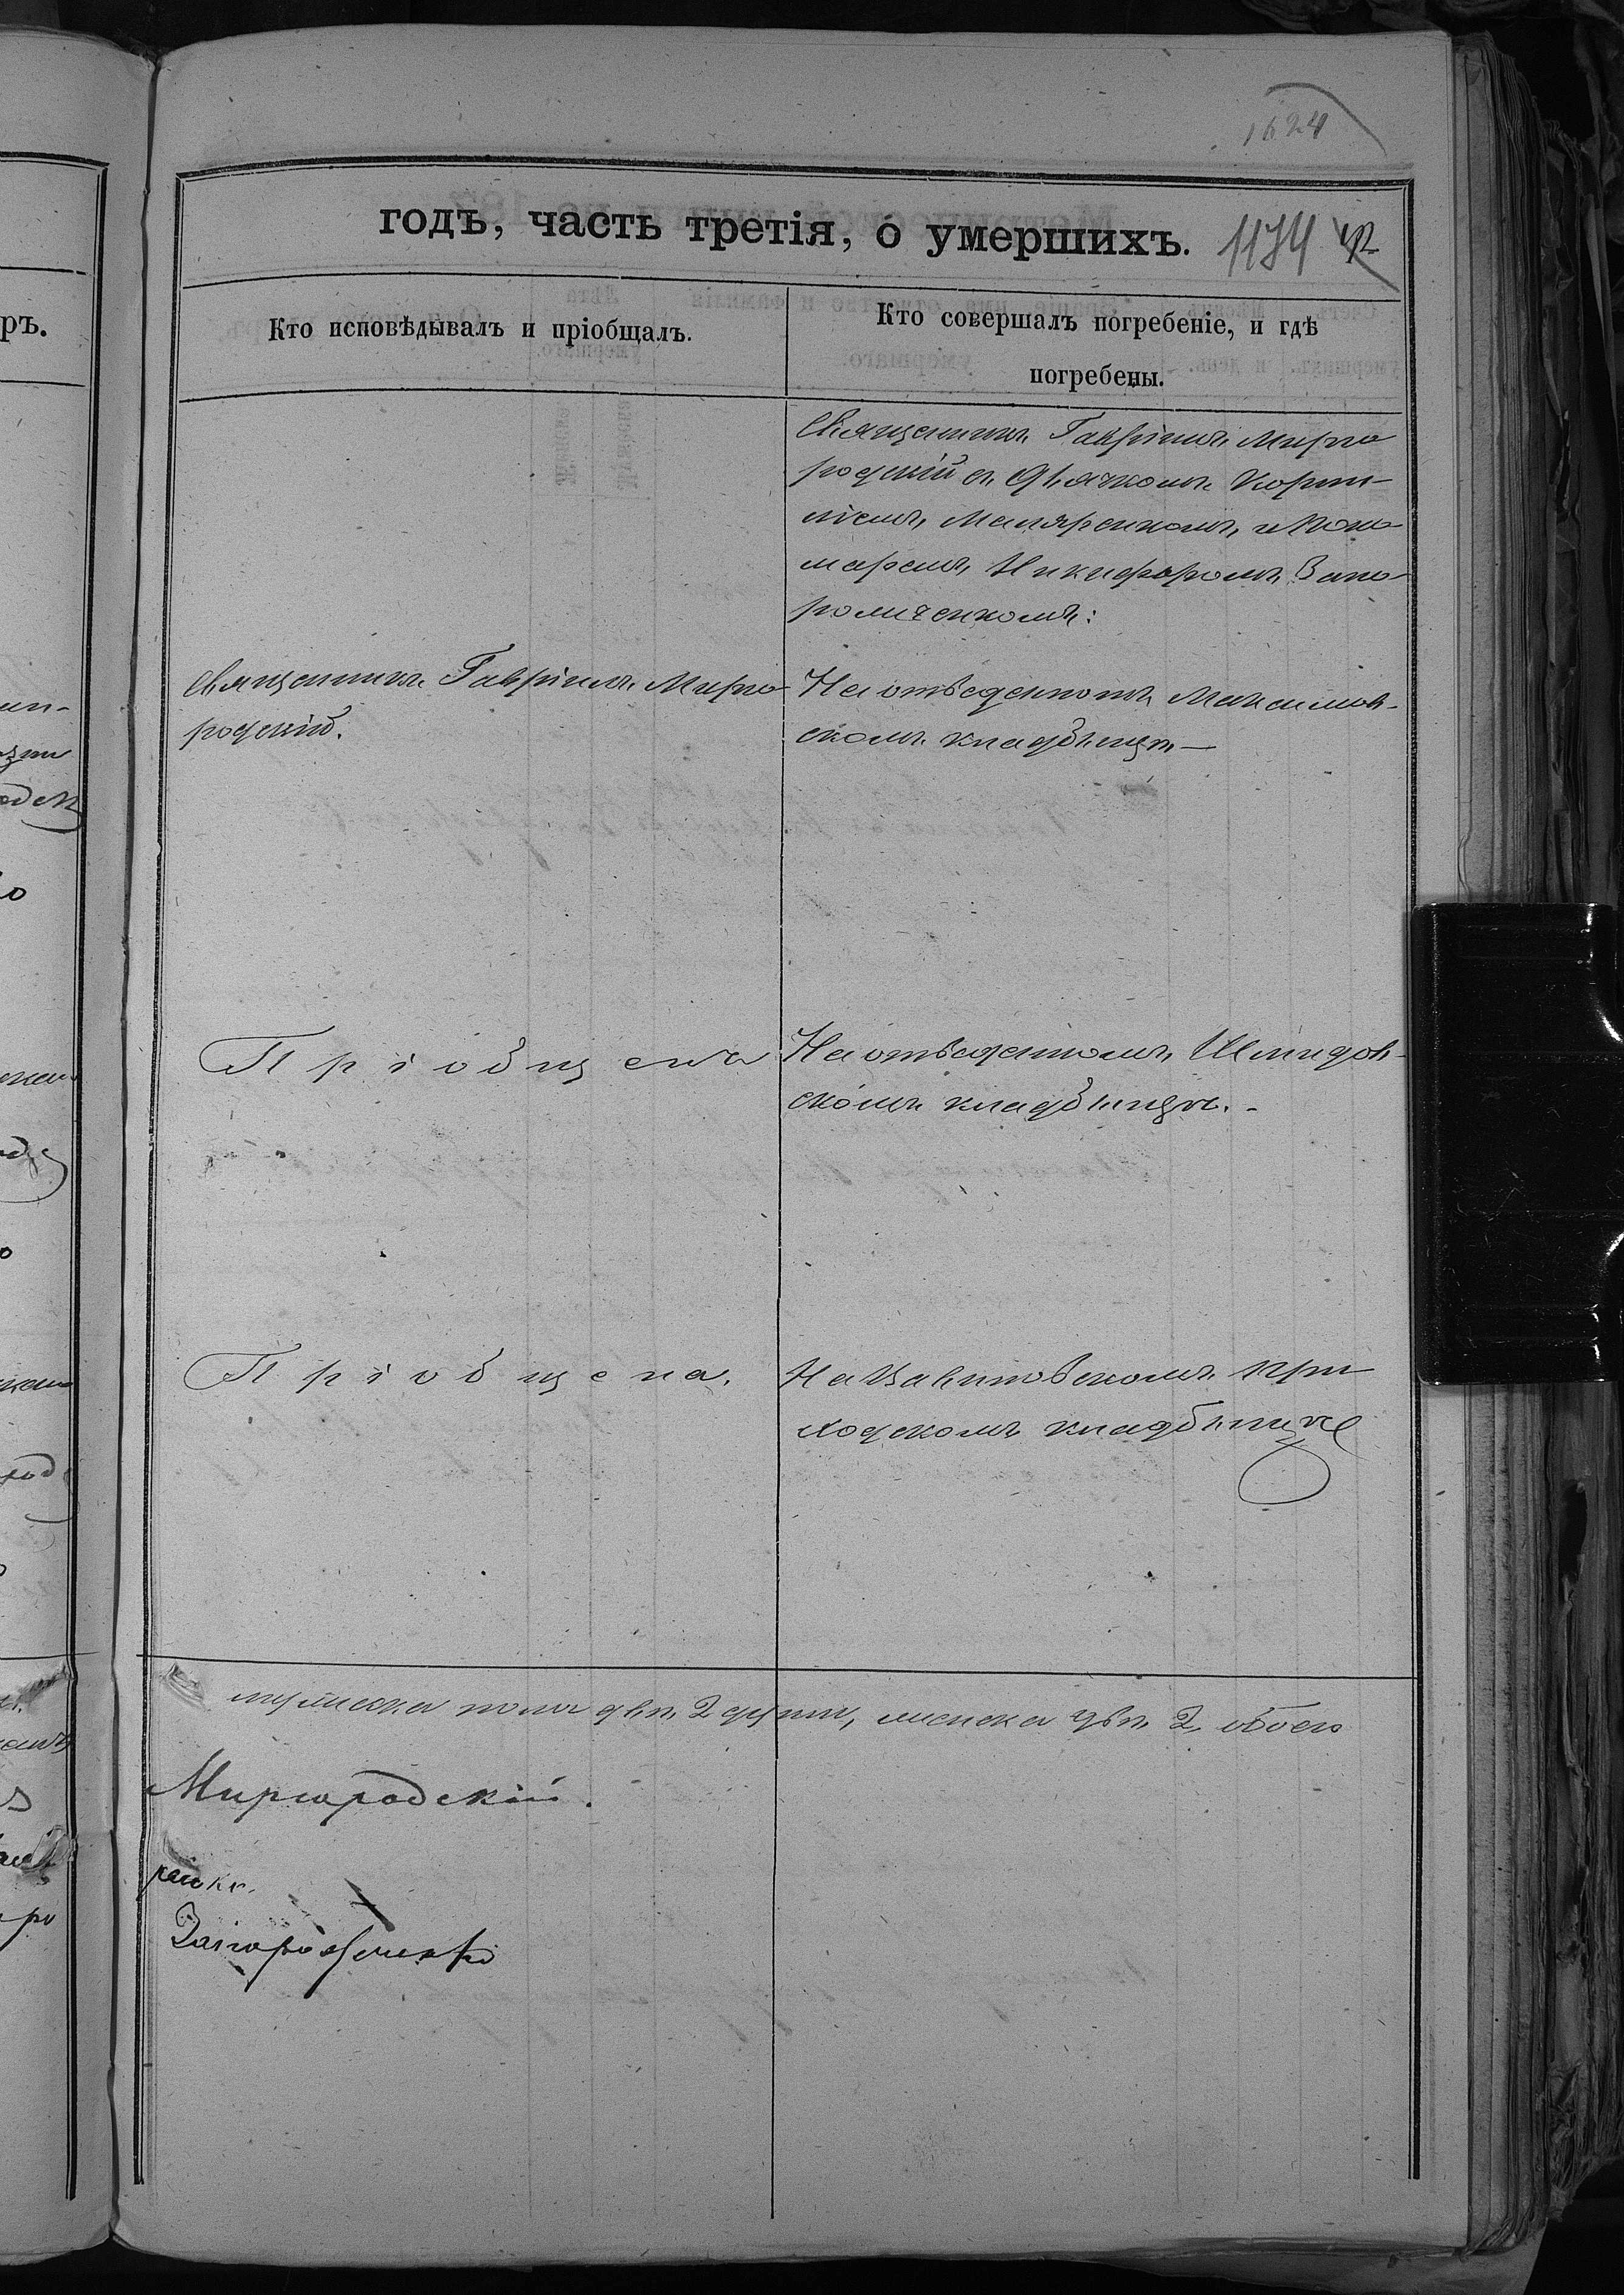 1624
годъ, часть третія, о умершихъ. 1174
Кто исповѣдывалъ и пріобщалъ.
Кто совершалъ погребеніе, и гдѣ
погребены.
Священникъ Гавріилъ Мирго
родскій съ Дьячкомъ Корни-
ліемъ Маляренкомъ и Поно-
маремъ Никифоромъ Запо-
Священникъ Гавріилъ Мирго
родскій.
На отведенномъ Максимов-
скомъ кладбищѣ —
Пріобщенъ
На отведенномъ Шмидов-
скомъ кладбищѣ. -
Пріобщена.
скомъ При
ходскомъ кладбищѣ
мужеска пола двѣ 2 души, женска двѣ 2 обоего
Миргородскій.
ренко.